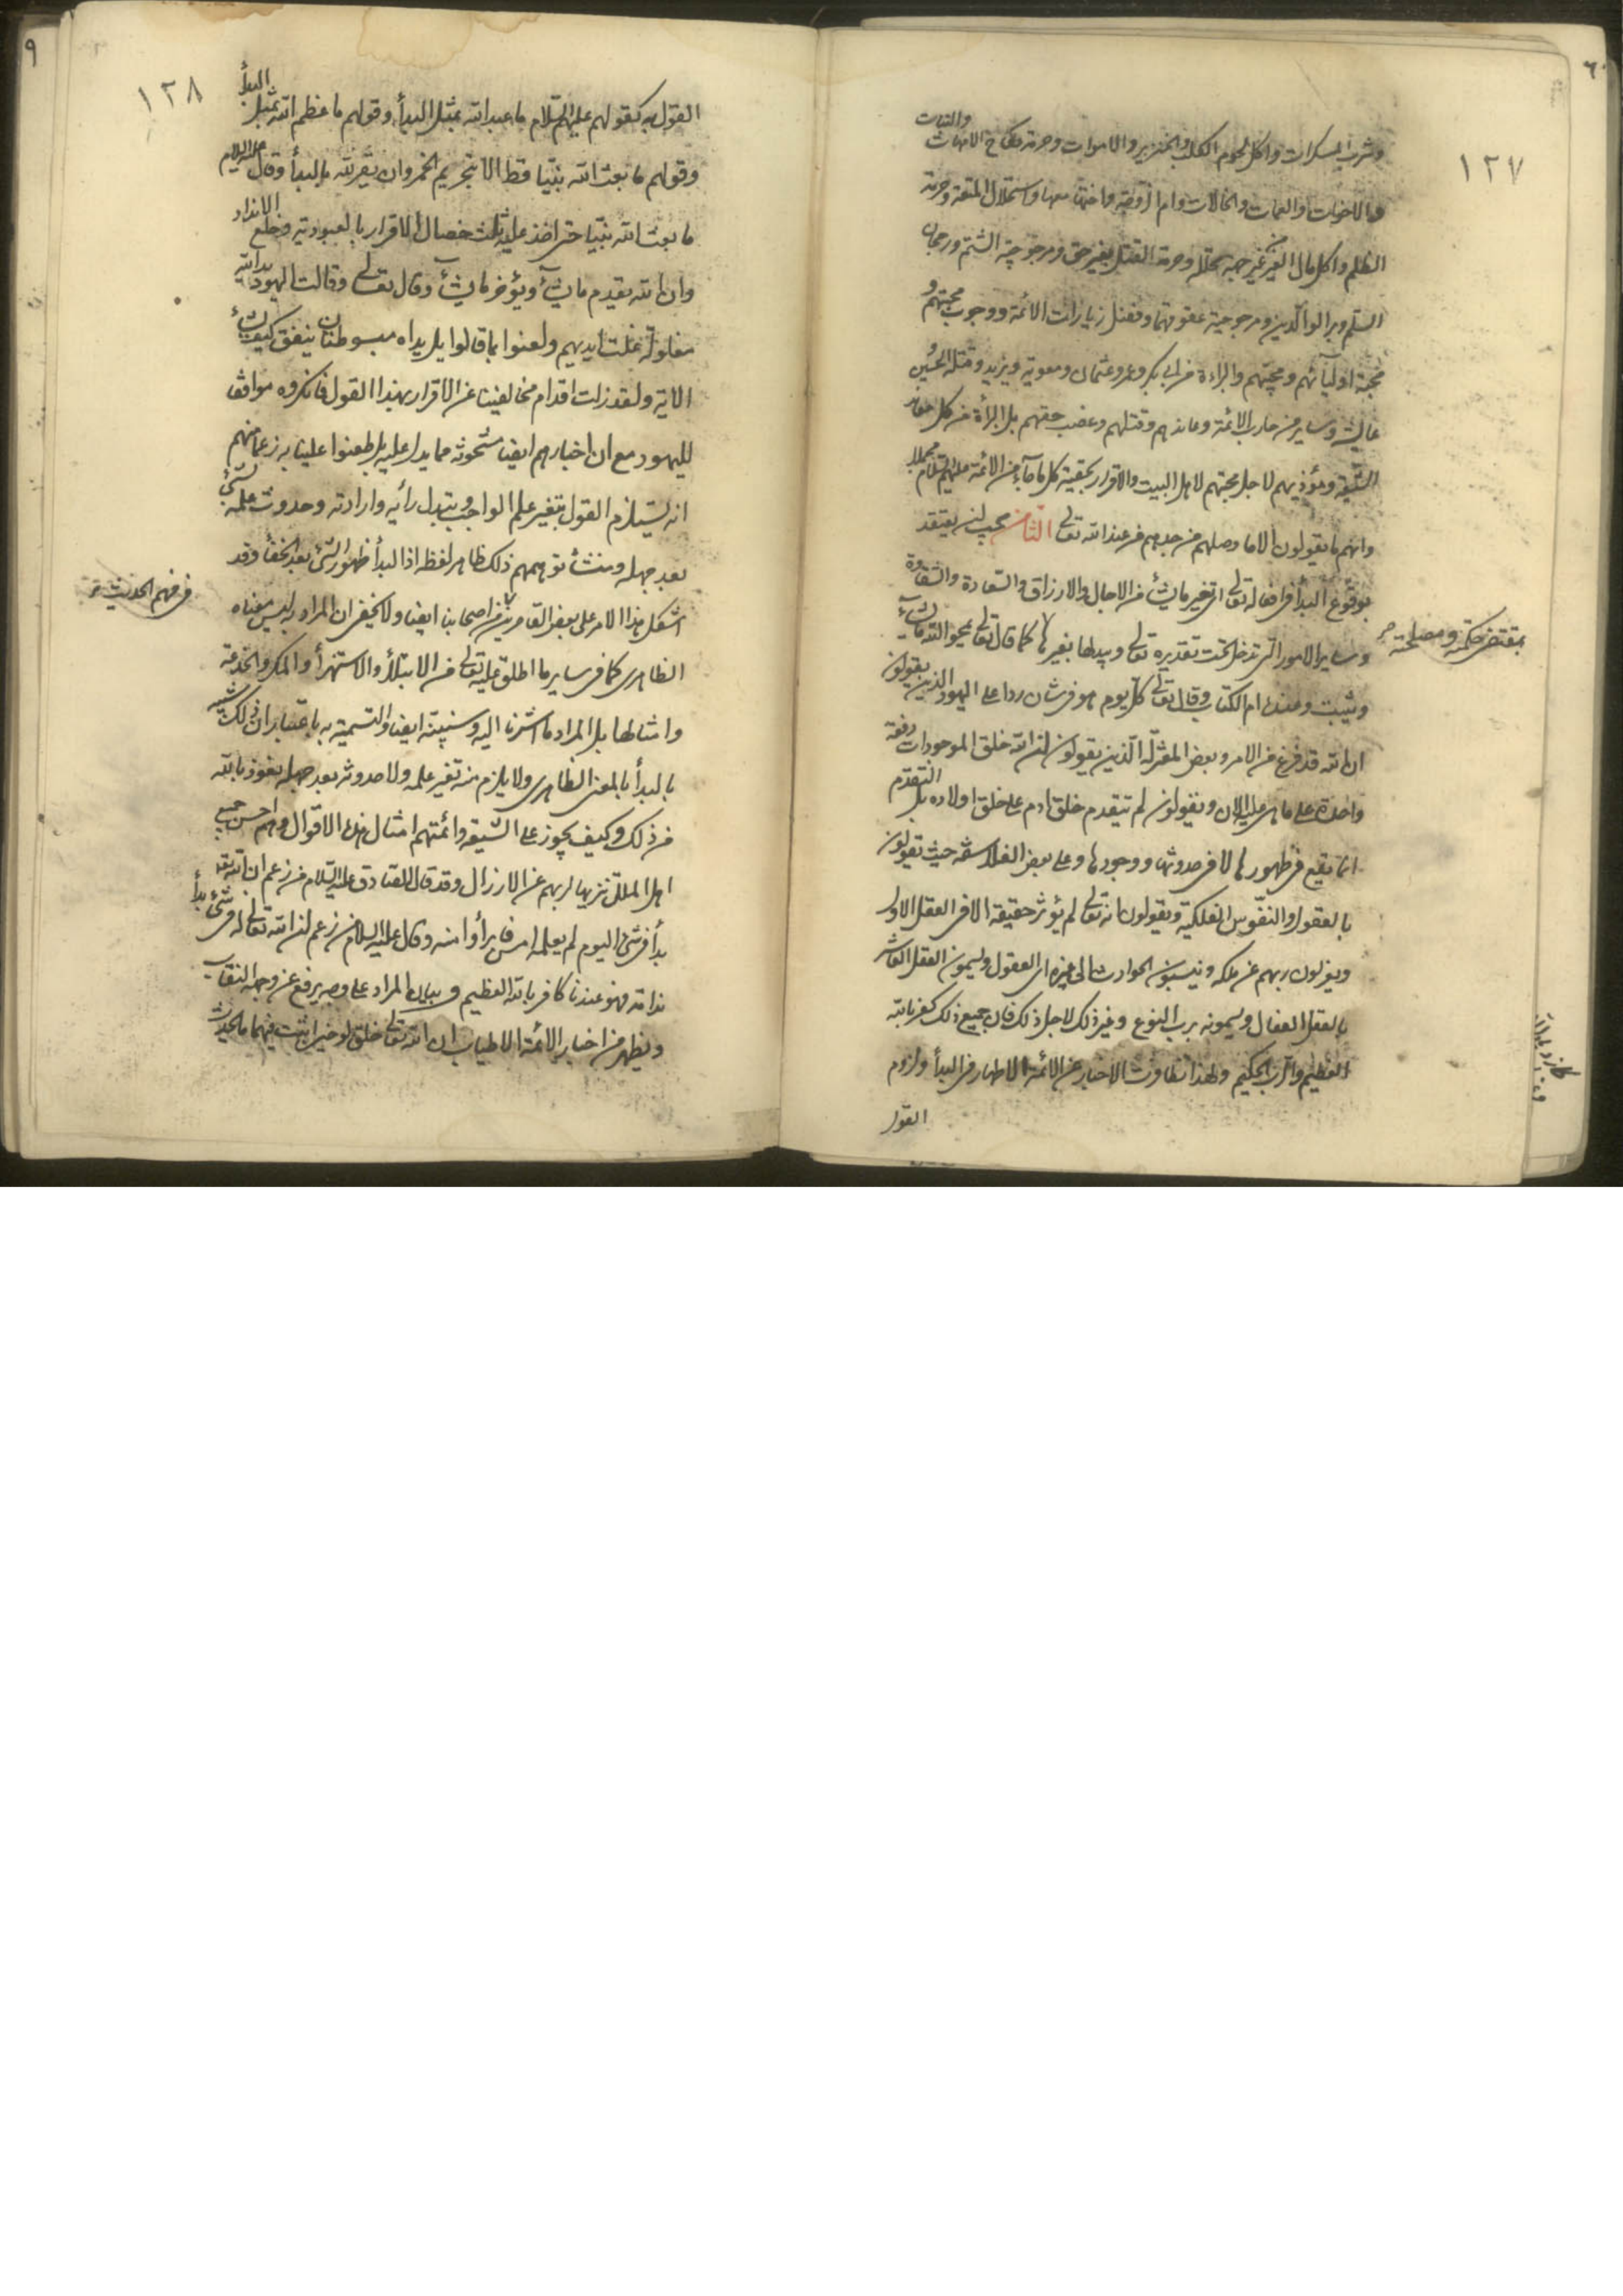 ١٢٧
وشرب المسكرات واكل لحوم الكلب والخنزير والاموات وحرمة نكاح الامهات والبنات
والاخوات والعمات والخالات وام الزوجة واختها معها واستحلال المتعة وحرمة
الظلم واكل مال الغير من غير جهة محللة وحرمة القتل بغير حق ومرجوحية الشتم ورجحان
السلم وبر الوالدين ومرجوحية عقوقهما وفضل زيارات الائمة ووجوب محبتهم و
محبة اوليائهم ومحبيهم والبراءة من ابى بكر وعمر وعثمان ومعوية ويزيد وقتلة الحسين و
عايشة وساير من حارب الائمة وعاندهم وقتلهم وغصب حقهم بل البرأة من كل معاند
الشيعة ومؤذيهم لاجل محبتهم لاهل البيت والاقرار بحقية كل ما جاء من الائمة عليهم السلام مجملا
وانهم ما يقولون الا ما وصلهم من جدهم من عند الله تعالى الثامن يجب لنا نعتقد
بوقوع البدأ فى افعاله تعالى اى تغير ما يشأ من الاجال والارزاق والسعادة والشقاوة
وساير الامور التى تدخل تحت تقديره تعالى وبدلها بغيرها كما قال تعالى يمحو الله ما يشاء
بمقتضى حكمته ومصلحته
ويثبت وعنده ام الكتاب وقال تعالى كل يوم هو فى شان ردا على اليهود الذين يقولون
ان الله قد فرغ من الامر وبعض المعتزلة الذين يقولون ان الله خلق الموجودات دفعة
واحدة على ما هى عليه الان ويقولون لم يتقدم خلق ادم على خلق اولاده بل التقدم
انما يقع فى ظهورها لا فى حدوثها ووجودها وعلى بعض الفلاسفة حيث يقولون
بالعقول والنفوس الفلكية ويقولون انه تعالى لم يؤثر حقيقة الا فى العقل الاول
ويعزلون ربهم عن ملكه وينسبون الحوادث الى غيره اى العقول ويسمون العقل العاشر
بالعقل الفعال ويسمونه برب النوع وغير ذلك لاجل ذلك فان جميع ذلك كفر بالله
العظيم والرب الحكيم ولهذا تظاوت الاخبار عن الائمة الاطهار فى البدأ ولزوم
القول
١٢٨
القول به كقولهم عليهم السلام ما عبد الله بمثل البدأ وقولهم ما عظم الله بمثل البدأ
وقولهم ما بعث الله نبيا قط الا بتحريم الخمر وان يقر لله بالبدأ وقال عليه السلام
ما بعث الله نبيا حتى اخذ عليه ثلث خصال الاقرار بالعبودية وخلع الانداد
وان الله يقدم ما يشأ ويؤخر ما يشأ وقال تعالى وقالت اليهود يد الله
مغلولة غلت ايديهم ولعنوا بما قالوا بل يداه مبسوطتان ينفق كيف يشاء
الاية ولقد زلت اقدام مخالفينا عن الاقرار بهذا القول فانكروه موافقا
لليهود مع ان اخبارهم ايضا مشحونة مما يدل عليه بل طعنوا علينا به زعما منهم
انه يستلزم القول بتغير علم الواجب وتبدل رأيه وارادته وحدوث علمه بشئ
بعد جهله ومنشأ توهمهم ذلك ظاهر لفظه اذ البدأ ظهور الشئ بعد الخفأ وقد
اشكل هذا الامر على بعض القاصرين من اصحابنا ايضا ولا يخفى ان المراد به ليس معناه
فى فهم الحديث
الظاهرى كما فى ساير ما اطلق عليه تعالى من الابتلأ والاستهزأ والمكر والخدعة
وامثالها بل المراد ما اشرنا اليه وسنبينه ايضا والتسمية به باعتبار ان ذلك شبيه
بالبدأ بالمعنى الظاهرى ولا يلزم منه تغير علمه ولا حدوثه بعد جهله نعوذ بالله
من ذلك وكيف يجوز على الشيعة وائمتهم امثال هذه الاقوال وهم احسن جميع
اهل الملل تنزيها لربهم عن الارذال وقد قال الصادق عليه السلام من زعم ان الله
بدأ فى شئ اليوم لم يعلمه امس فابرأوا منه وقال عليه السلام من زعم ان الله تعالى له فى شئ بدأ
ندامة فهو عندنا كافر بالله العظيم وبيان المراد على وجه يرفع عن وجهه النقاب
ويظهر من اخبار الائمة الاطياب ان الله تعالى خلق لوحين اثبت فيهما ما يحدث